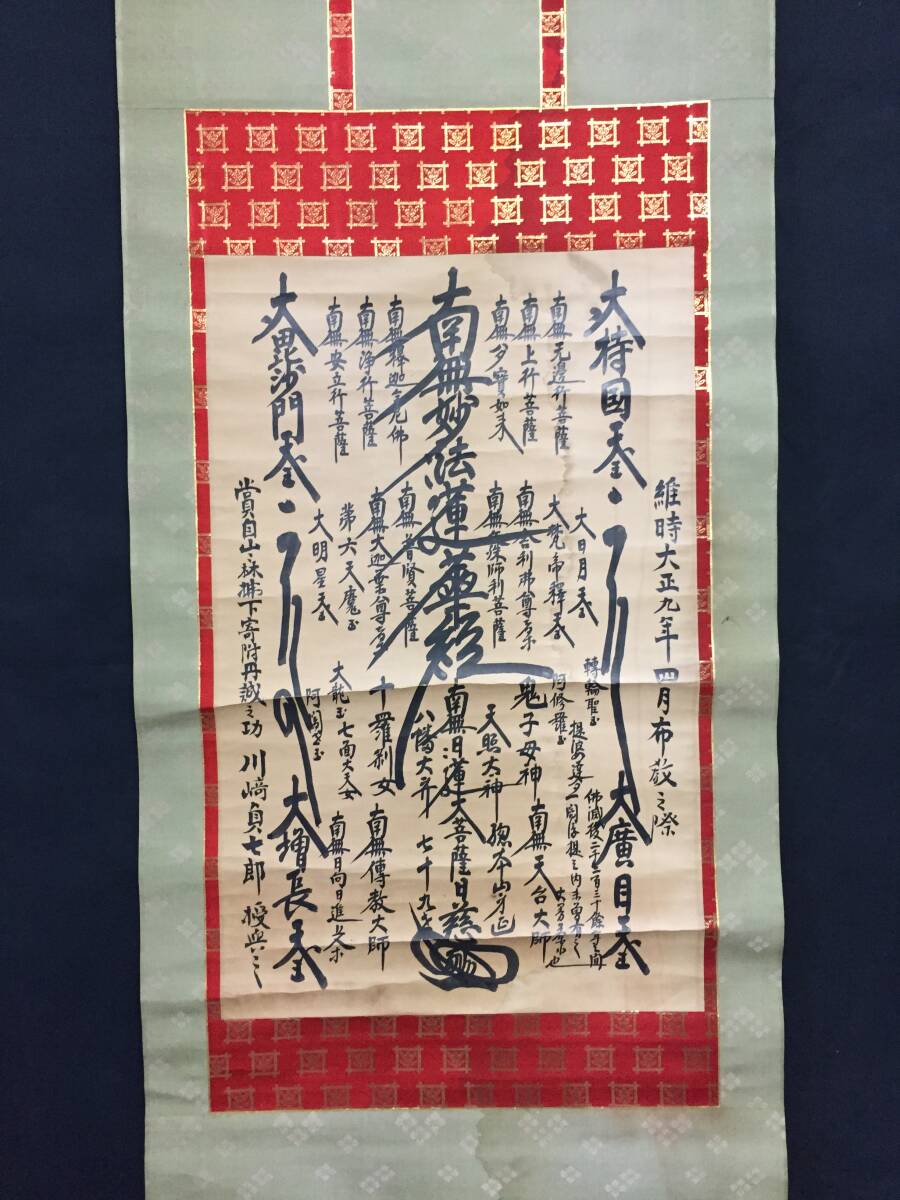 維時大正九年四月布教之際
大持國天王
大廣目天王
南無無邊行菩薩
南無上行菩薩
南無多寶如来
大日月天王
大梵帝釋天王
南無舎利弗尊者
南無文殊師利菩薩
轉輪聖王
阿修羅王
提婆達多
鬼子母神
天照太神
佛滅後二千二百三十餘年之間
一閻浮提之内未曽有之
大曼荼羅也
南無天台大師
惣本山身延
南無妙法蓮華経
南無日蓮大菩薩
日慈
七十九
南無釋迦牟尼佛
南無浄行菩薩
南無安立行菩薩
南無普賢菩薩
南無大迦葉尊者
第六天魔王
大明星天王
八幡大菩薩
十羅刹女
七面大天女
大龍王
阿闍世王
南無傳教大師
南無日向日進上人
大毘沙門天王
大増長天王
賞自山
下寄附丹誠之功
川﨑貞七郎
授與之